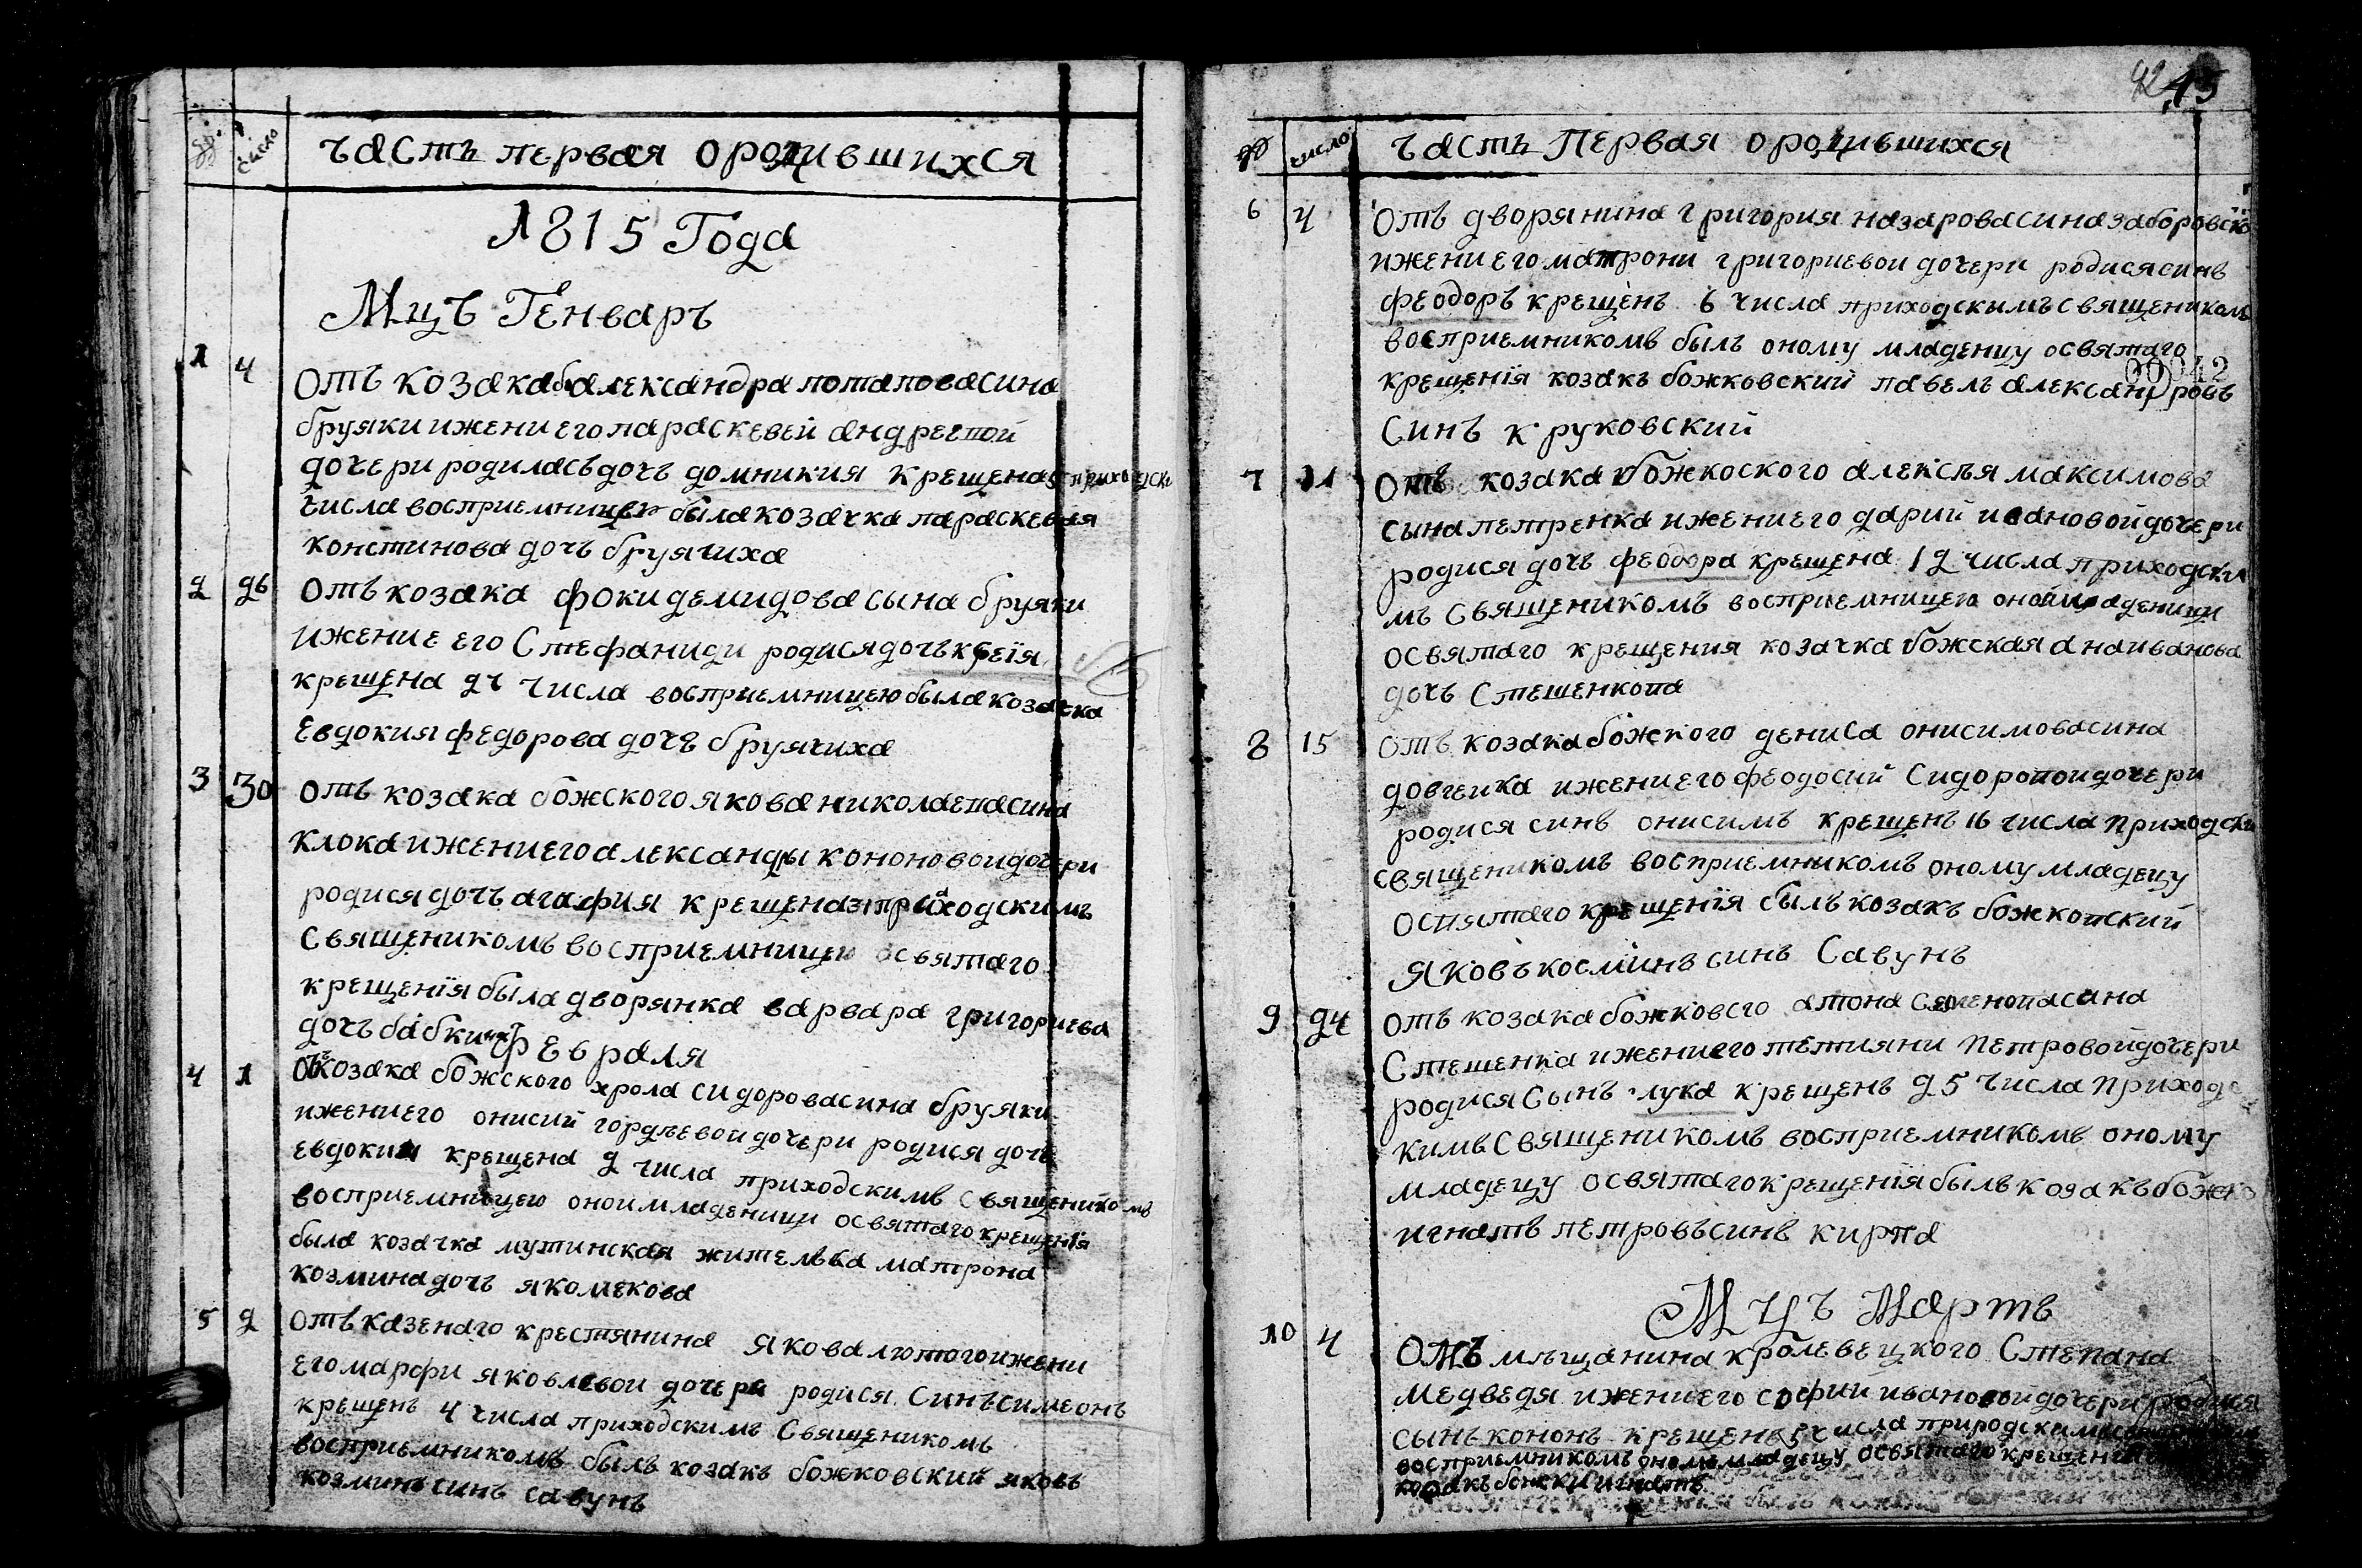 число
часть первая о родившихся
1815 Года
Мцъ Генваръ
1 4 Отъ козака александра потапова сина
бруяки и жени его параскевей андреевой
дочери родилась дочь домникия крещена 5 приходски
числа восприемницею была козачка параскевая
констинова дочь бруячиха
2 26 Отъ козака фоки демидова сына бруяки
и жение его Стефаниди родися дочь
крещена числа восприемницею была козачка
Евдокия федорова дочь бруячиха
3 30 отъ козака божского якова николаева сина
клока и жени его александры кононовои дочери
родися дочь агафия крещена 31 приходскимъ
Священикомъ восприемницею освятаго
крещенїя была дворянка варвара григориева
дочь
Февраля
4 1 От козака божского хрола сидорова сина бруяки
и жени его онисий гордѣевои дочери родися дочь
евдокия крещена 2 числа приходскимъ Священикомъ
восприемницею онои младеници освятаго крещенїя
была козачка мутинская жителька матрона
козмина дочь якомекова
5 2 отъ казенаго крестянина якова лютого и жени
его марфи яковлевои дочери родися синъ симеонъ
крещенъ 4 числа приходскимъ Священикомъ
восприемникомъ былъ козакъ божковский яковъ
козминъ синъ савунъ
42 45
число
часть Первая о родившихся
6 4 Отъ дворянина григория назарова сина заборовско
и жени его матрони григориевои дочери родися синъ
феодоръ крещенъ 6 числа приходскимъ священикомъ
восприемникомъ былъ оному младенцу освятаго
00042
крещенїя козакъ божковский павелъ александровъ
Синъ круковский
7 11 Отъ козака божкоского алексѣя максимова
сына петренка и жени его дарий ивановой дочери
родися дочь феодора крещена 12 числа приходски
мъ Священикомъ восприемницею оной младеници
освятаго крещения козачка божская ана иванова
дочь Стешенкова
8 15 Отъ козака божского дениса онисимова сина
довгенка и жени его феодосий Сидоровои дочери
родися синъ онисимъ крещенъ 16 числа приходски
священикомъ восприемникомъ оному младецу
освятаго крещенїя былъ козакъ божковский
яковъ косминъ синъ Савунъ
9 24 Отъ козака божковсго атона Семенова сина
Стешенка и жени его тетияни петровой дочери
родися Сынъ лука крещенъ 25 числа приходс
кимъ Священикомъ восприемникомъ оному
младецу освятаго крещенїя былъ козакъ божко
игнатъ петровъ синъ кирпа
Мцъ Мартъ
10 4 Отъ мѣщанина кролевецкого Степана
медведя и жени его софий ивановой дочери родися
сынъ кононъ крещенъ 5 числа природским
восприемникомъ оному младецу освятаго крещения
козакъ божский игнатъ